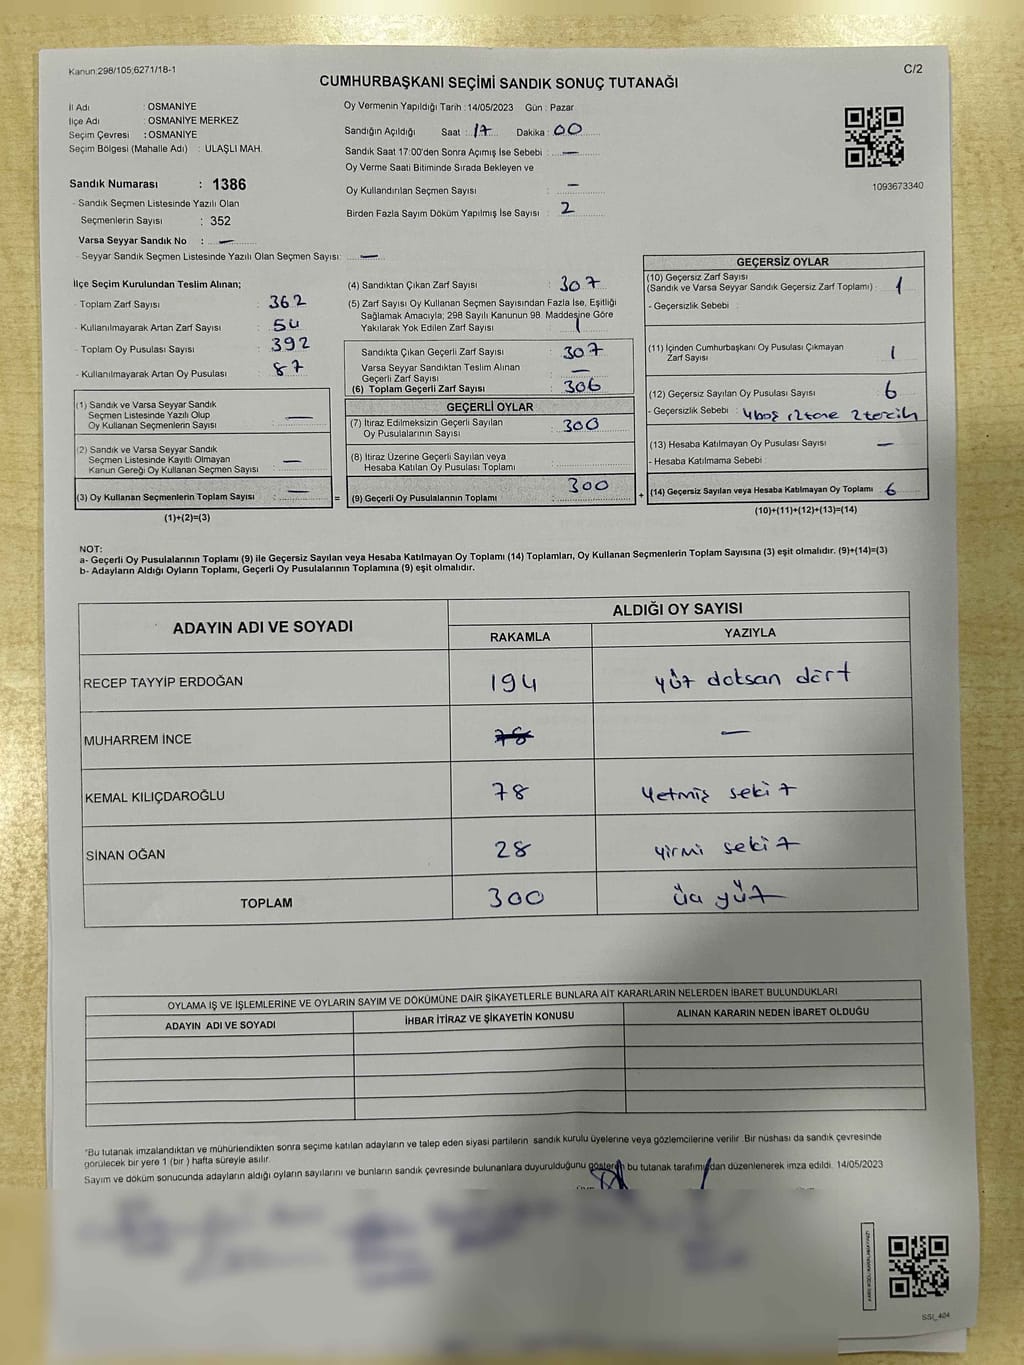 Kanun:298/105;6271/18-1
C/2
CUMHURBAŞKANI SEÇİMİ SANDIK SONUÇ TUTANAĞI
İl Adı : OSMANİYE
İlçe Adı : OSMANİYE MERKEZ
Seçim Çevresi : OSMANİYE
Seçim Bölgesi (Mahalle Adı) : ULAŞLI MAH.
Sandık Numarası : 1386
- Sandık Seçmen Listesinde Yazılı Olan
Seçmenlerin Sayısı : 352
Varsa Seyyar Sandık No : —
- Seyyar Sandık Seçmen Listesinde Yazılı Olan Seçmen Sayısı: —
Oy Vermenin Yapıldığı Tarih : 14/05/2023 Gün : Pazar
Sandığın Açıldığı Saat : 17 Dakika : 00
Sandık Saat 17:00'den Sonra Açımış İse Sebebi : —
Oy Verme Saati Bitiminde Sırada Bekleyen ve
Oy Kullandırılan Seçmen Sayısı : —
Birden Fazla Sayım Döküm Yapılmış İse Sayısı : 2
1093673340
İlçe Seçim Kurulundan Teslim Alınan;
- Toplam Zarf Sayısı : 362
- Kullanılmayarak Artan Zarf Sayısı : 54
- Toplam Oy Pusulası Sayısı : 392
- Kullanılmayarak Artan Oy Pusulası : 87
(1) Sandık ve Varsa Seyyar Sandık
Seçmen Listesinde Yazılı Olup
Oy Kullanan Seçmenlerin Sayısı : —
(2) Sandık ve Varsa Seyyar Sandık
Seçmen Listesinde Kayıtlı Olmayan
Kanun Gereği Oy Kullanan Seçmen Sayısı : —
(3) Oy Kullanan Seçmenlerin Toplam Sayısı : —
(1)+(2)=(3)
=
(4) Sandıktan Çıkan Zarf Sayısı : 307
(5) Zarf Sayısı Oy Kullanan Seçmen Sayısından Fazla İse, Eşitliği
Sağlamak Amacıyla; 298 Sayılı Kanunun 98. Maddesine Göre
Yakılarak Yok Edilen Zarf Sayısı : 1
Sandıkta Çıkan Geçerli Zarf Sayısı : 307
Varsa Seyyar Sandıktan Teslim Alınan
Geçerli Zarf Sayısı : —
(6) Toplam Geçerli Zarf Sayısı : 306
GEÇERLİ OYLAR
(7) İtiraz Edilmeksizin Geçerli Sayılan
Oy Pusulalarının Sayısı : 300
(8) İtiraz Üzerine Geçerli Sayılan veya
Hesaba Katılan Oy Pusulası Toplamı :
(9) Geçerli Oy Pusulalarının Toplamı : 300
+
GEÇERSİZ OYLAR
(10) Geçersiz Zarf Sayısı
(Sandık ve Varsa Seyyar Sandık Geçersiz Zarf Toplamı) : 1
- Geçersizlik Sebebi :
(11) İçinden Cumhurbaşkanı Oy Pusulası Çıkmayan
Zarf Sayısı 1
(12) Geçersiz Sayılan Oy Pusulası Sayısı : 6
- Geçersizlik Sebebi : 4 boş 2 tane 2 tercih
(13) Hesaba Katılmayan Oy Pusulası Sayısı : —
- Hesaba Katılmama Sebebi :
(14) Geçersiz Sayılan veya Hesaba Katılmayan Oy Toplamı : 6
(10)+(11)+(12)+(13)=(14)
NOT:
a- Geçerli Oy Pusulalarının Toplamı (9) ile Geçersiz Sayılan veya Hesaba Katılmayan Oy Toplamı (14) Toplamları, Oy Kullanan Seçmenlerin Toplam Sayısına (3) eşit olmalıdır. (9)+(14)=(3)
b- Adayların Aldığı Oyların Toplamı, Geçerli Oy Pusulalarının Toplamına (9) eşit olmalıdır.
ADAYIN ADI VE SOYADI
ALDIĞI OY SAYISI
RAKAMLA YAZIYLA
RECEP TAYYİP ERDOĞAN 194 yüz doksan dört
MUHARREM İNCE 78 —
KEMAL KILIÇDAROĞLU 78 yetmiş sekiz
SİNAN OĞAN 28 yirmi sekiz
TOPLAM 300 üç yüz
OYLAMA İŞ VE İŞLEMLERİNE VE OYLARIN SAYIM VE DÖKÜMÜNE DAİR ŞİKAYETLERLE BUNLARA AİT KARARLARIN NELERDEN İBARET BULUNDUKLARI
ADAYIN ADI VE SOYADI İHBAR İTİRAZ VE ŞİKAYETİN KONUSU ALINAN KARARIN NEDEN İBARET OLDUĞU
*Bu tutanak imzalandıktan ve mühürlendikten sonra seçime katılan adayların ve talep eden siyasi partilerin sandık kurulu üyelerine veya gözlemcilerine verilir. Bir nüshası da sandık çevresinde
görülecek bir yere 1 (bir ) hafta süreyle asılır.
Sayım ve döküm sonucunda adayların aldığı oyların sayılarını ve bunların sandık çevresinde bulunanlara duyurulduğunu gösteren bu tutanak tarafımızdan düzenlenerek imza edildi. 14/05/2023
SSI_404